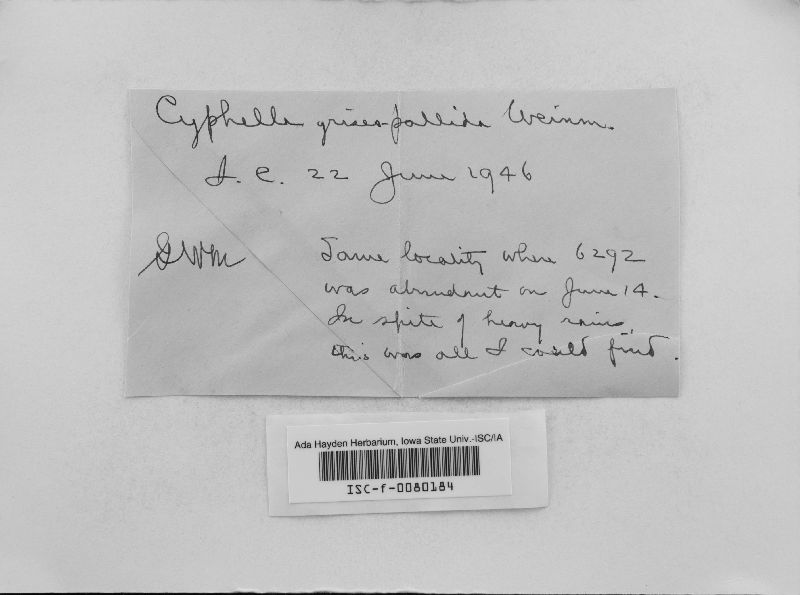 Cyphella griseo-pallida Weinm.
I. C. 22 June 1946
GWM
Same locality where 6292
was abundant on June 14.
In spite of heavy rains,
this was all I could find.
Ada Hayden Herbarium, Iowa State Univ.-ISC/IA
ISC-f-0080184